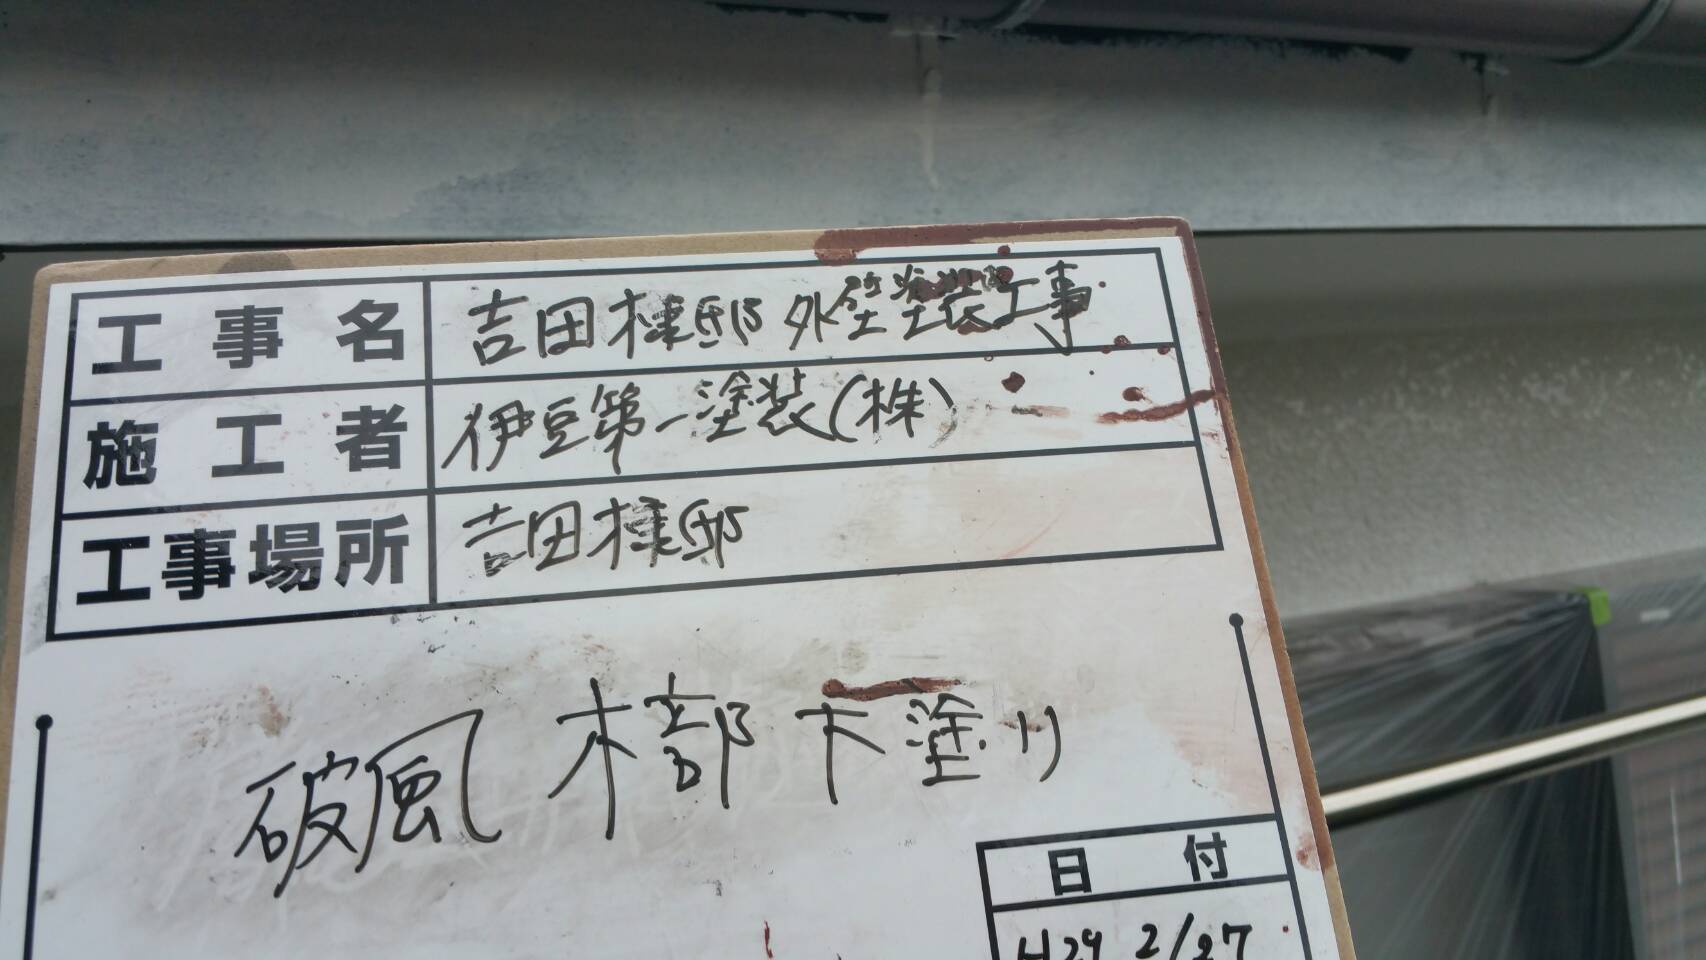 工事名 吉田様邸 外壁塗装工事
施工者 伊豆第一塗装(株)
工事場所 吉田様邸
破風 木部下塗り
日付
H29 2/27